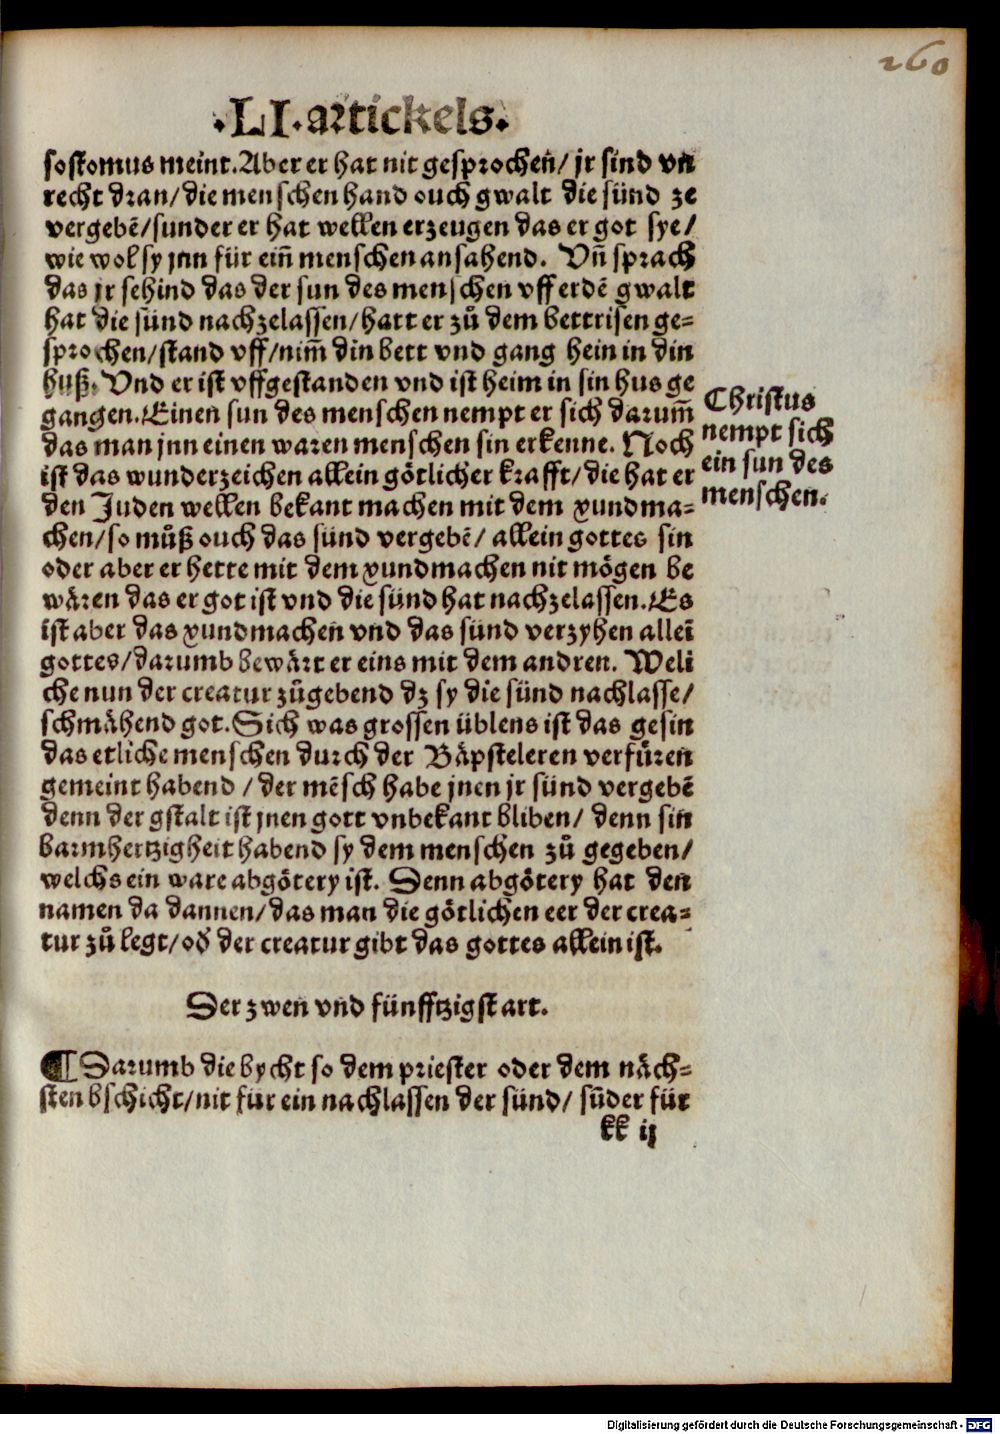 260
.LI.artickels.
sostomus meint. Aber er hat nit gesprochen̄/ jr sind vn
recht dran/ die menschen hand ouch gwalt die sünd ze
vergebē/ sunder er hat wellen erzeugen das er got sye/
wie wol sy jnn für ein̄ menschen ansahend. Vn̄ sprach
das jr sehind das der sun des menschen vff erdē gwalt
hat die sünd nachzelassen/ hatt er zů dem bettrisen ge-
sprochen/ stand vff/ nim̄ din bett vnd gang hein in din
huß. Vnd er ist vffgestanden vnd ist heim in sin hus ge
gangen. Einen sun des menschen nempt er sich darum̄
das man jnn einen waren menschen sin erkenne. Noch
ist das wunderzeichen allein götlicher krafft/ die hat er
den Juden wellen bekant machen mit dem xundma-
chen/ so můß ouch das sünd vergebē/ allein gottes sin
oder aber er hette mit dem xundmachen nit mögen be
wären das er got ist vnd die sünd hat nachzelassen. Es
ist aber das xundmachen vnd das sünd verzyhen alleī
gottes/ darumb bewärt er eins mit dem andren. Weli
che nun der creatur zůgebend dz sy die sünd nachlasse/
schmähend got. Sich was grossen üblens ist das gesin
das etliche menschen durch der Bäpsteleren verfüren
gemeint habend / der mēsch habe jnen jr sünd vergebē
denn der gstalt ist jnen gott vnbekant bliben/ denn sin
barmhertzigheit habend sy dem menschen zů gegeben/
welchs ein ware abgötery ist. Denn abgötery hat den
namen da dannen/ das man die götlichen eer der crea-
tur zů legt/ od̄ der creatur gibt das gottes allein ist.
Christus
nempt sich
ein sun des
menschen.
Der zwen vnd fünfftzigst art.
¶ Darumb die bycht so dem priester oder dem näch-
sten bschicht/ nit für ein nachlassen der sünd/ sūder für
kk ij
Digitalisierung gefördert durch die Deutsche Forschungsgemeinschaft - DFG